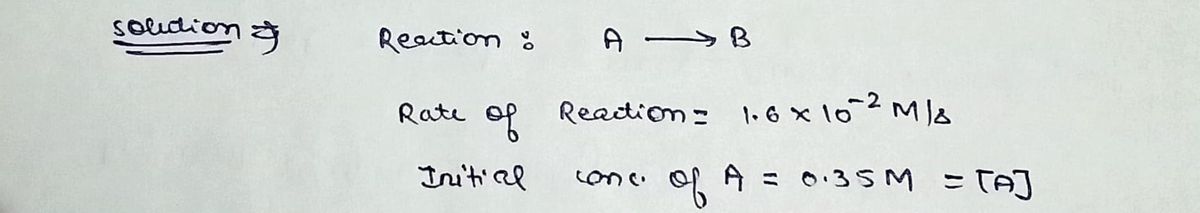 solution ⇒ Reaction : A ⟶ B
Rate of Reaction = 1.6 × 10⁻² M/s
Initial conc. of A = 0.35 M = [A]